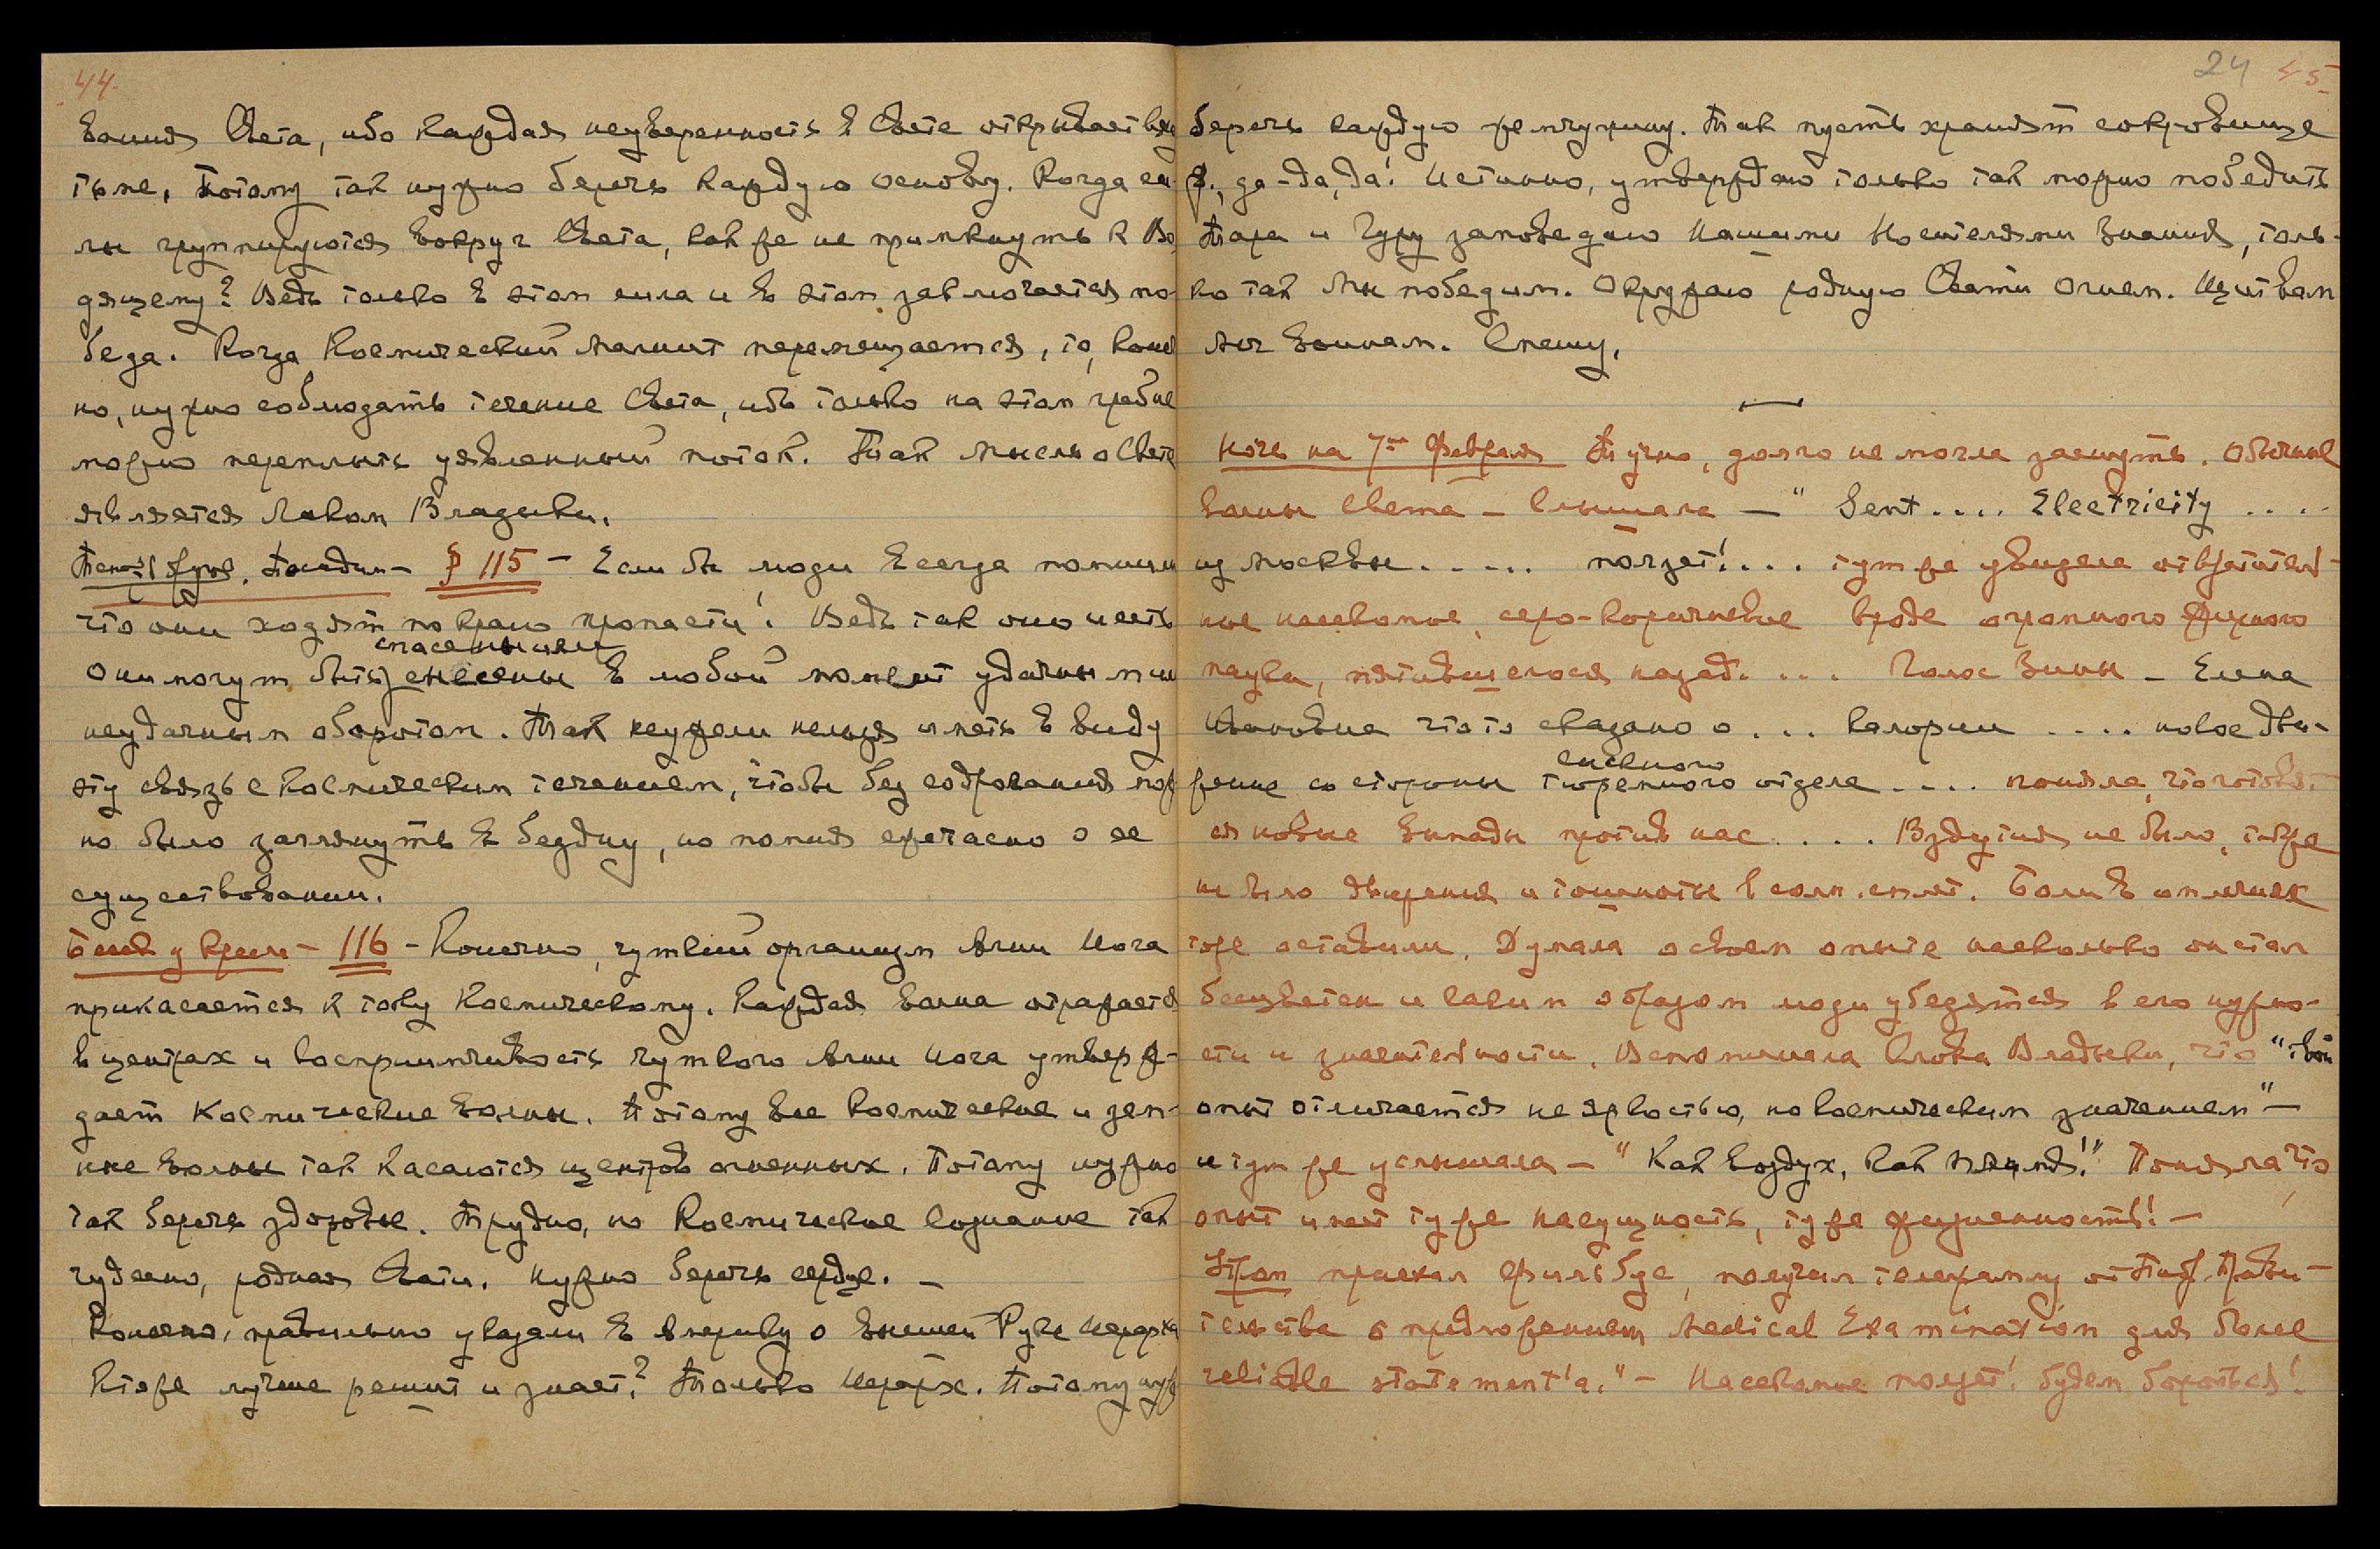 44.
вания Света, ибо каждая неуверенность в Свете открывает вход
тьме. Потому так нужно беречь каждую основу. Когда си-
лы группируются вокруг Света, как же не примкнуть к Во-
дящему? Ведь только в этом сила и в этом заключается по-
беда. Когда Космический Магнит перемещается, то, конеч-
но, нужно соблюдать течение Света, ибо только на этом гребне
можно переплыть уявленный поток. Так мысль о Свете
является Ликом Владыки.
Посидим – § 115 – Если бы люди всегда помнили
что они ходят по краю пропасти! Ведь так оно и есть
спасенными
они могут быть в любой момент удачным или
неудачным оборотом. Так неужели нельзя иметь в виду
эту связь с Космическим течением, чтобы без содрогания мож-
но было заглянуть в бездну, но помня ежечасно о ее
существовании.
116 – Конечно, чуткий организм Агни Йога
прикасается к току Космическому. Каждая волна отражается
в центрах и восприимчивость чуткого Агни Йога утверж-
дает Космические волны. Потому все Космические и зем-
ные волны так касаются центров огненных. Потому нужно
так беречь здоровье. Трудно, но Космическое сознание так
чудесно, родная Свати. Нужно беречь сердце. –
Конечно, правильно указали в Америку о высшей Руке Иерарха
Кто же лучше решит и знает? Только Иерарх. Потому нуж
24 45
беречь каждую жемчужину. Так пусть хранят сокровище
да-да, да! Истинно, утверждаю только так можно победить
Тара и Гуру заповедаю Нашими Носителями Знания, толь-
ко так Мы победим. Окружаю родную Свати Огнем. Щит вам
Меч воинам. Спешу.
—
Ночь на 7ое Февраля Душно, долго не могла заснуть. Обычные
волны света – Слышала – " Sent .... Electricity ....
из Москвы ..... ползет! ... тут же увидела отвратитель-
ное насекомое, серо-коричневое вроде огромного жирного
паука, пятившегося назад. ... Голос Зины – Елена
Ивановна что-то сказано о ... калории .... новое дви-
жение со стороны отдела .... поняла, что готовят-
ся новые выпады против нас .... Вздутия не было, также
не было движения и тошноты в солн. сплет. Боли в
тоже оставили. Думала о своем опыте насколько он стал
бесцветен и каким образом люди убедятся в его нужно-
сти и значительности. Вспомнила слова Владыки, что "твой
опыт отличается не яркостью, но космическим значением" –
и тут же услышала – " Как воздух, как пища!" Поняла что
опыт имеет ту же насущность, ту же жизненность! –
Утром приехал Фильбус, получил телеграмму от Правит-
ельства с предложением Medical Examination для более
reliable statement'a." – Насекомое ползет! Будем бороться!